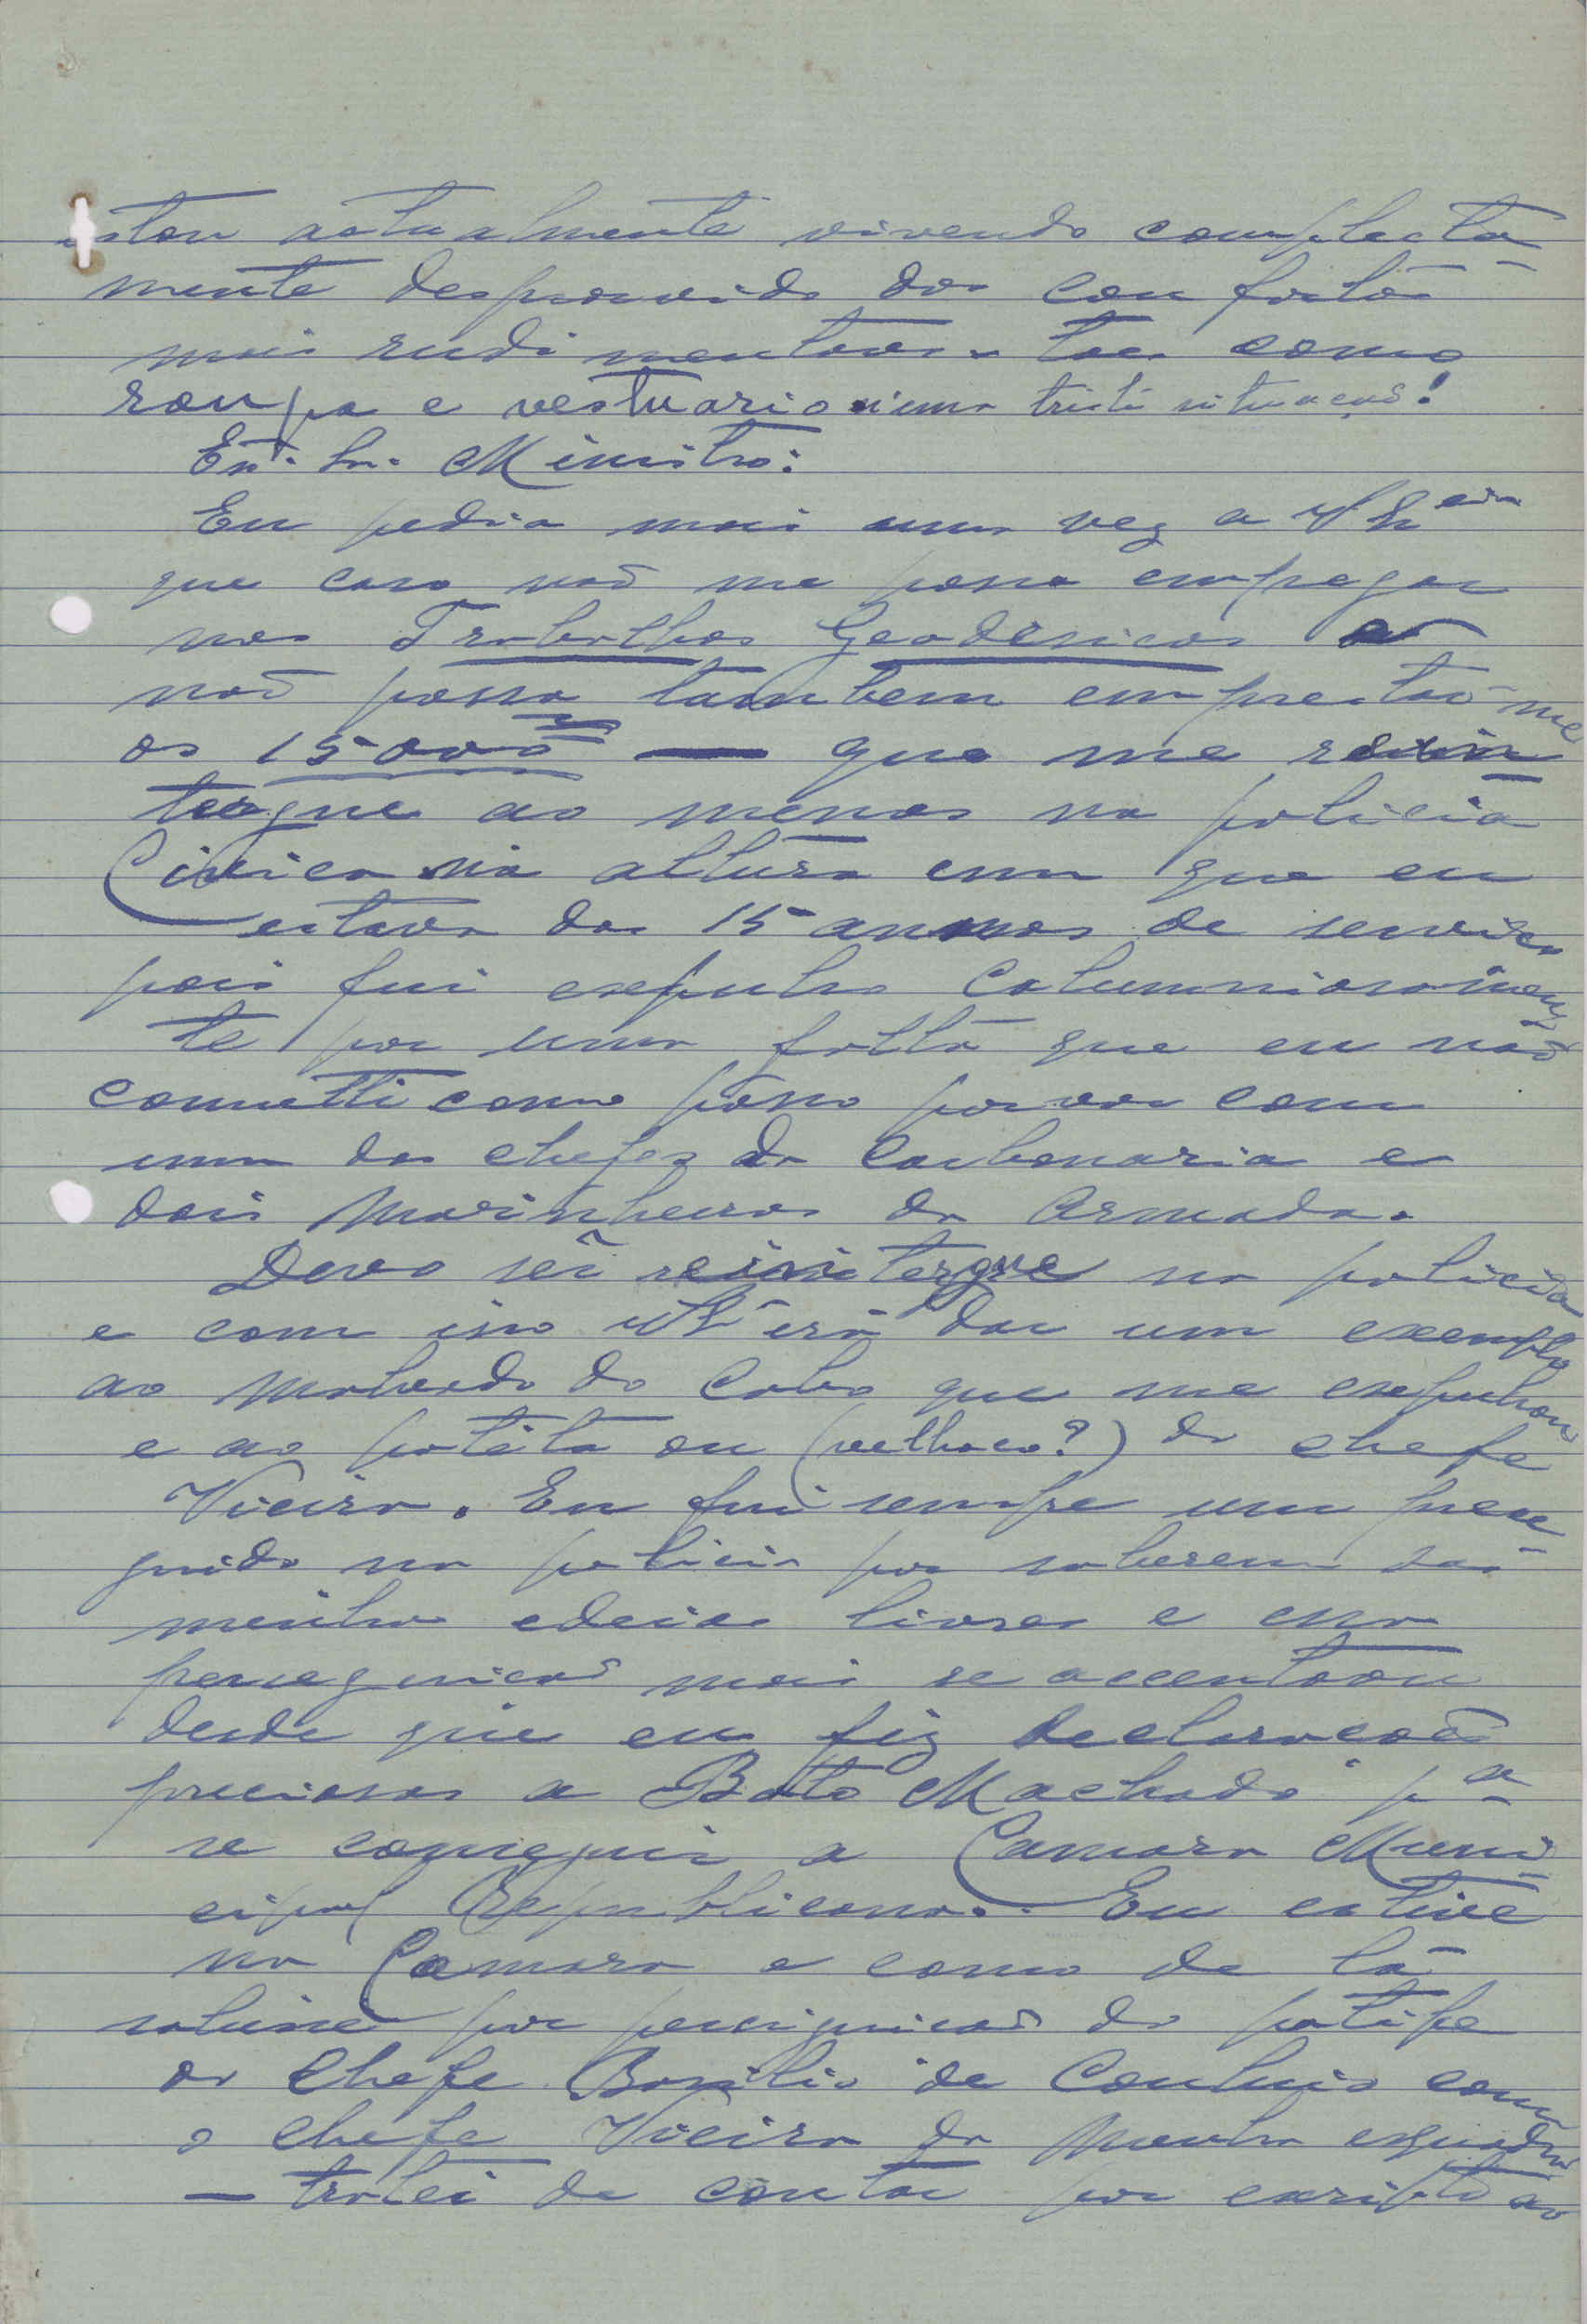 estou actualmente vivendo complecta-
mente desprouvido dos confortos
mais rudimentares - taes como
roupa e vestuario n'uma triste situação!
Ex. Sr. Ministro:
Eu pedia mais uma vez a V Ex.cia
que caso não me possa empregar
nos Trabalhos Geodesicos e
não possa tambem emprestar-me
os 15000 — que me rein
tergue ao menos na policia
Civica na altura em que eu
estava dos 15 annos de serviço
pois fui expulso calumniosamen
te por uma falta que eu não
cometti como posso provar com
um dos chefes da Carbonaria e
dois Marinheiros da Armada.
Devo ser reintergue na policia
e com isso V Ex.ª irá dar um exemplo
ao Malvado do Cabo que me expulsou
e ao patêta ou (velhaco?) do chefe
Vieira. Eu fui sempre um perse-
guido na policia por saberem das
minhas edeias livres e essa
perseguição mais se accentoou
desde que eu fiz declarações
preciosas a Boto Machado pª
se conseguir a Camara Muni-
cipal Republicana. Eu estive
na Camara e como de lá
sahisse por perseguição do patife
do Chefe Basilio de Conluio com
o chefe Vieira da Minha esquadra
— tratei de contar por escripto ao